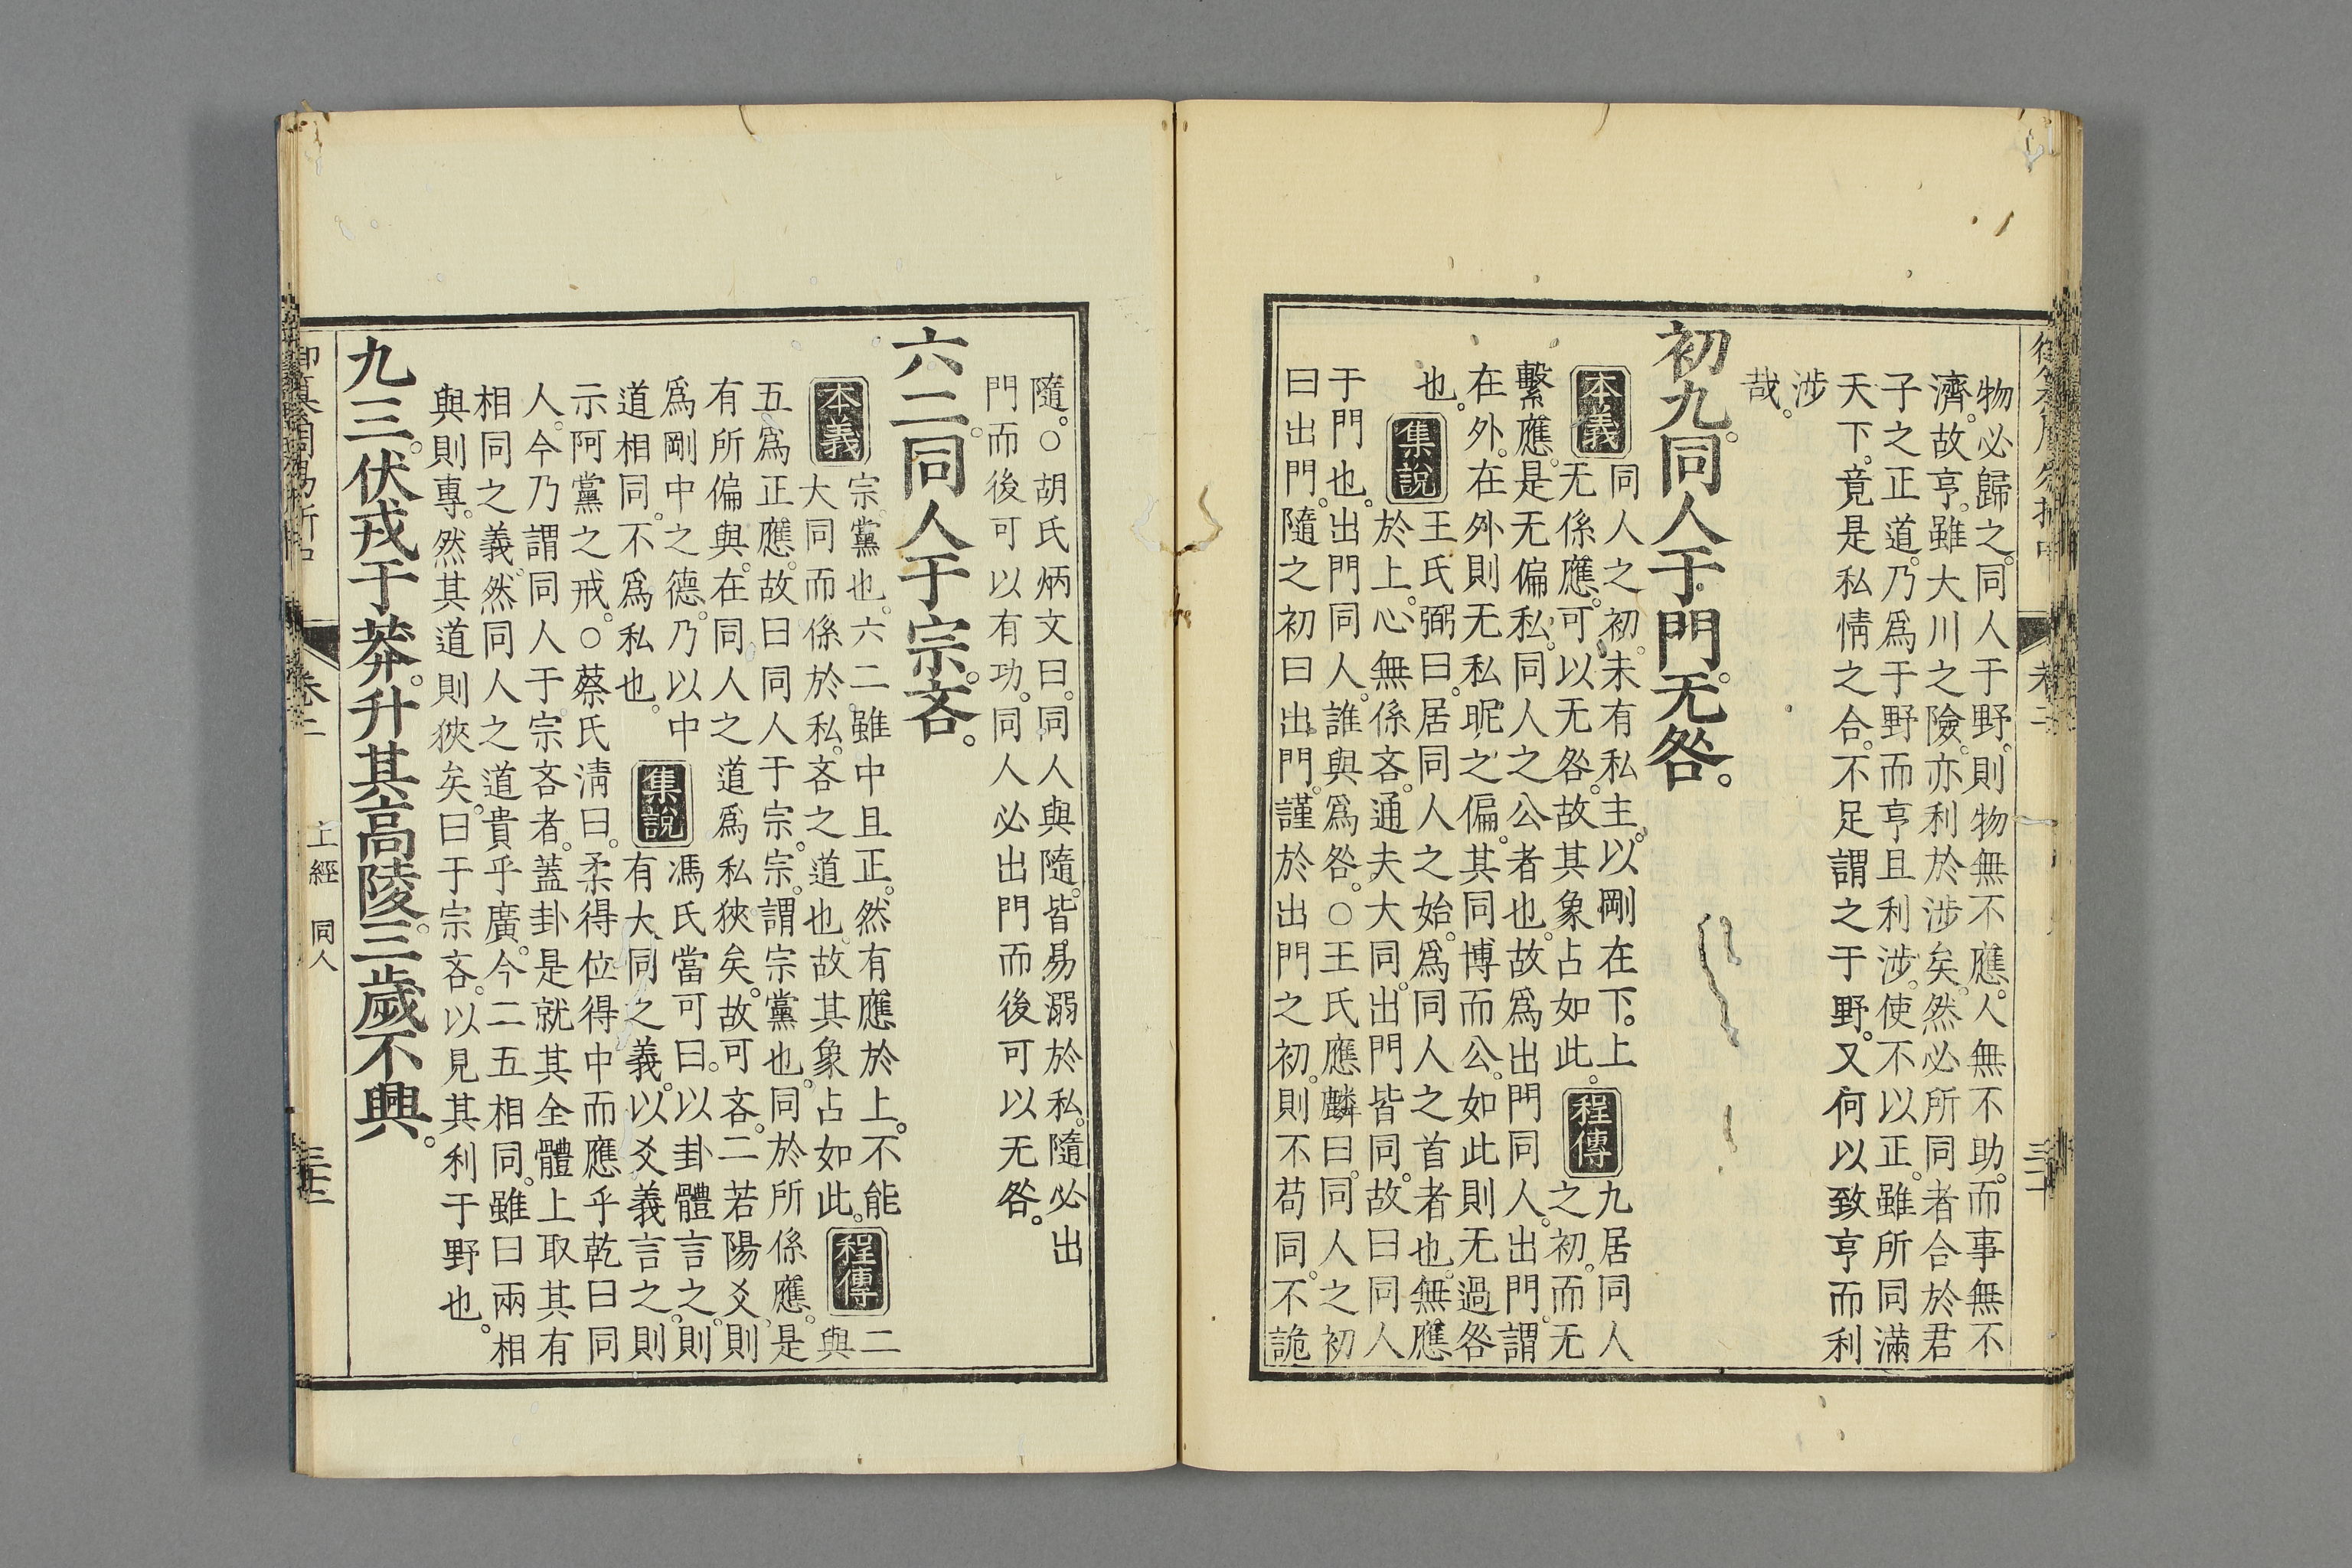 卷二
物必歸之。同人于野。則物無不應。人無不助。而事無不
濟。故亨。雖大川之險。亦利於涉矣。然必所同者合於君
子之正道。乃爲于野而亨且利涉。使不以正。雖所同滿
天下。竟是私情之合。不足謂之于野。又何以致亨而利
涉
哉。
初九。同人于門。无咎。
本義
同人之初。未有私主。以剛在下。上
无係應。可以无咎。故其象占如此。
程傳
九居同人
之初。而无
繫應。是无偏私。同人之公者也。故爲出門同人。出門。謂
在外。在外則无私昵之偏。其同博而公。如此則无過咎
也。
集說
王氏弼曰。居同人之始。爲同人之首者也。無應
於上。心無係吝。通夫大同。出門皆同。故曰同人
于門也。出門同人。誰與爲咎。○王氏應麟曰。同人之初
曰出門。隨之初曰出門。謹於出門之初。則不苟同。不詭
隨。○胡氏炳文曰。同人與隨。皆易溺於私。隨必出
門而後可以有功。同人必出門而後可以无咎。
六二。同人于宗。吝。
本義
宗黨也。六二雖中且正。然有應於上。不能
大同而係於私。吝之道也。故其象占如此。
程傳
二
與
五爲正應。故曰同人于宗。宗。謂宗黨也。同於所係應。是
有所偏與。在同人之道爲私狹矣。故可吝。二若陽爻。則
爲剛中之德。乃以中
道相同。不爲私也。
集說
馮氏當可曰。以卦體言之。則
有大同之義。以爻義言之。則
示阿黨之戒。○蔡氏淸曰。柔得位得中而應乎乾曰同
人。今乃謂同人于宗吝者。蓋卦是就其全體上取其有
相同之義。然同人之道貴乎廣。今二五相同。雖曰兩相
與則專。然其道則狹矣。曰于宗吝。以見其利于野也。
九三。伏戎于莽。升其高陵。三歲不興。
卷二 上經 同人